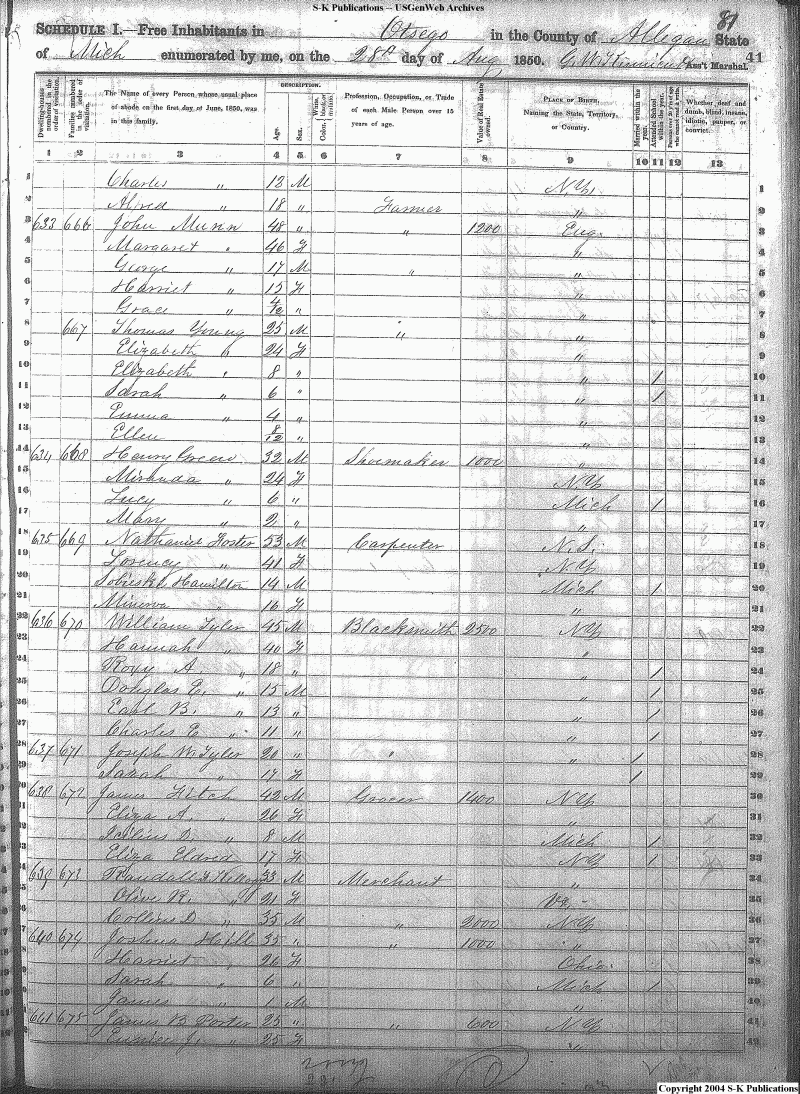 S-K Publications – USGenWeb Archives
81
SCHEDULE I.—Free Inhabitants in Otsego in the County of Allegan State
of Mich enumerated by me, on the 28th day of Aug 1850. Ass't Marshal. 41
Dwelling-houses numbered in the order of visitation.
Families numbered in the order of visitation.
The Name of every Person whose usual place of abode on the first day of June, 1850, was in this family.
DESCRIPTION.
Age.
Sex.
White, Colored, black, or mulatto.
Profession, Occupation, or Trade of each Male Person over 15 years of age.
Value of Real Estate owned.
PLACE OF BIRTH, Naming the State, Territory, or Country.
Married within the year.
Attended School within the year.
Persons over 20 y'rs of age who cannot read & write.
Whether deaf and dumb, blind, insane, idiotic, pauper, or convict.
1 2 3 4 5 6 7 8 9 10 11 12 13
1 Charles " 12 M N.Y. 1
2 18 " Farmer " 2
3 633 666 John Munn 48 " " 1200 Eng. 3
4 Margaret " 46 F " 4
5 George " 17 M " " 5
6 Harriet " 15 F " 6
7 Grace " 4/12 " " 7
8 667 Thomas Young 25 M " " 8
9 Elizabeth " 24 F " 9
10 Elizabeth " 8 " " 1 10
11 Sarah " 6 " " 1 11
12 Emma " 4 " " 12
13 Ellen 8/12 " " 13
14 634 668 Henry Green 32 M Shoemaker 1000 " 14
15 Miranda " 24 F N.Y. 15
16 Lucy " 6 " Mich 1 16
17 Mary " 2 " " 17
18 635 669 Nathaniel Foster 53 M Carpenter 18
19 " 41 F N.Y. 19
20 Hamilton 14 M Mich 1 20
21 Minerva " 16 F " 21
22 636 670 William Tyler 45 M Blacksmith 2500 N.Y. 22
23 Hannah " 40 F " 23
24 Roxy A. " 18 " " 1 24
25 Douglas E. " 15 M " 1 25
26 Earl B. " 13 " " 1 26
27 Charles E " 11 " " 1 27
28 637 671 Joseph W. Tyler 20 " " " 1 28
29 Sarah " 17 F 1 29
30 638 672 James Fitch 42 M Grocer 1400 N.Y. 30
31 Eliza A. " 26 F " 31
32 D. " 8 M Mich 1 32
33 Eliza Eldred 17 F N.Y. 1 33
34 639 673 Randall 33 M Merchant " 34
35 Olive R. " 21 F 35
36 Collins D. " 35 M " 2000 N.Y. 36
37 640 674 Joshua Hill 35 " " 1000 " 37
38 Harriet " 26 F Ohio 38
39 Sarah " 6 " Mich 1 39
40 James " 1 M " 40
41 641 675 James B Porter 25 " " 600 N.Y. 41
42 Eunice J. " 25 F " 42
Copyright 2004 S-K Publications